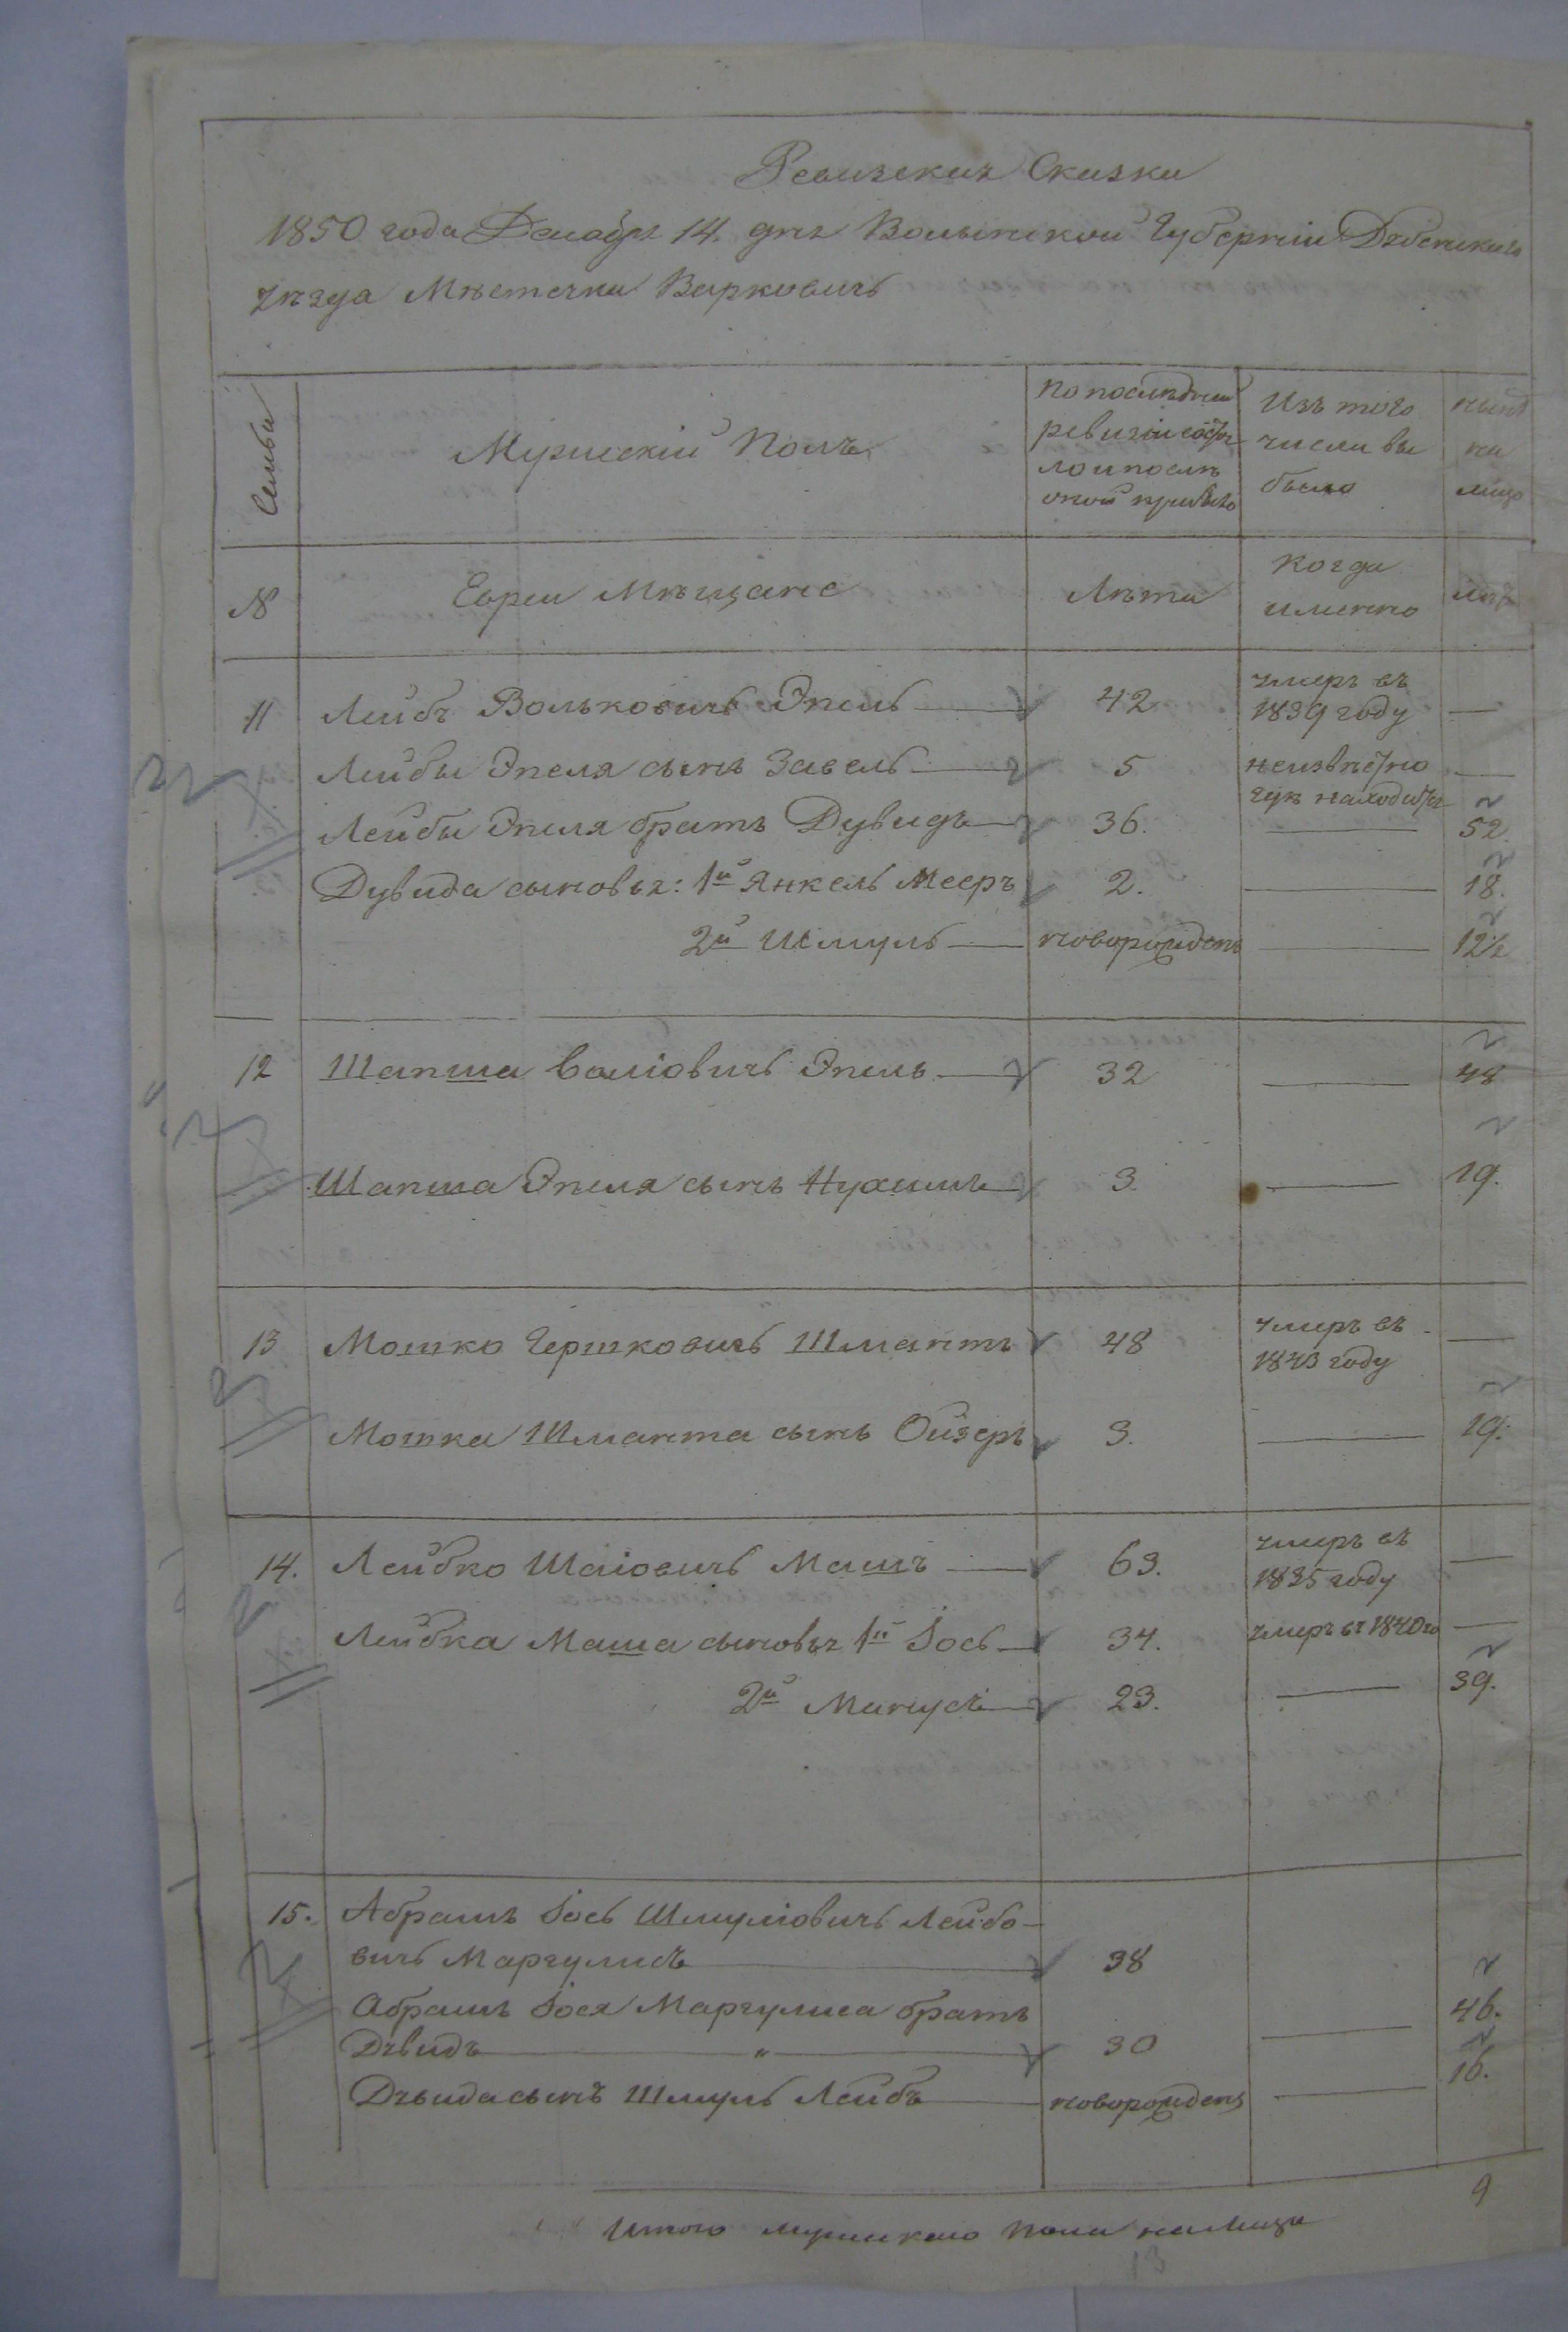 Ревизская Сказка
1850 года Декабря 14 дня Волынской Губерніи Дубенскаго
уѣзда Мѣстечка Варковичь
Семьи
Мужескій Полъ
По послѣдней
ревизіи состоя
ло и послѣ
оной прибыло
Изъ того
числа вы
было
нынѣ
на
лицо
№
Евреи Мѣщане
Лѣта
Когда
именно
лѣта
11 Лейбъ Вольковичь Эпель 42 умеръ въ
1839 году —
Лейбы Эпеля сынъ Завель 5 неизвѣстно
гдѣ находится —
Лейбы Эпеля братъ Дувидъ 36. — 52.
Дувида сыновья: 1й Янкель Мееръ 2. — 18.
2й Шмуль новорожденъ — 12½
12 Шапша Воліовичь Эпель 32 — 48
Шапша Эпеля сынъ Нухимъ 3. — 19.
13 Мошко Гершковичь Шмантъ 48 умеръ въ
1843 году —
Мошка Шманта сынъ Ойзеръ 3. — 19.
14. Лейбко Шаіовичь Машъ 63. умеръ въ
1835 году —
Лейбка Маша сыновья 1й Іось 34. умеръ въ 1840го —
2й Манусъ 23. — 39.
15. Абрамъ Іось Шмуліовичь Лейбо-
вичь Маргулисъ 38
Абрамъ Іося Маргулиса братъ
Дувидъ " 30 — 46.
Дувида сынъ Шмуль Лейбъ новорожденъ — 16.
9
Итого мужескаго пола на лицо
13